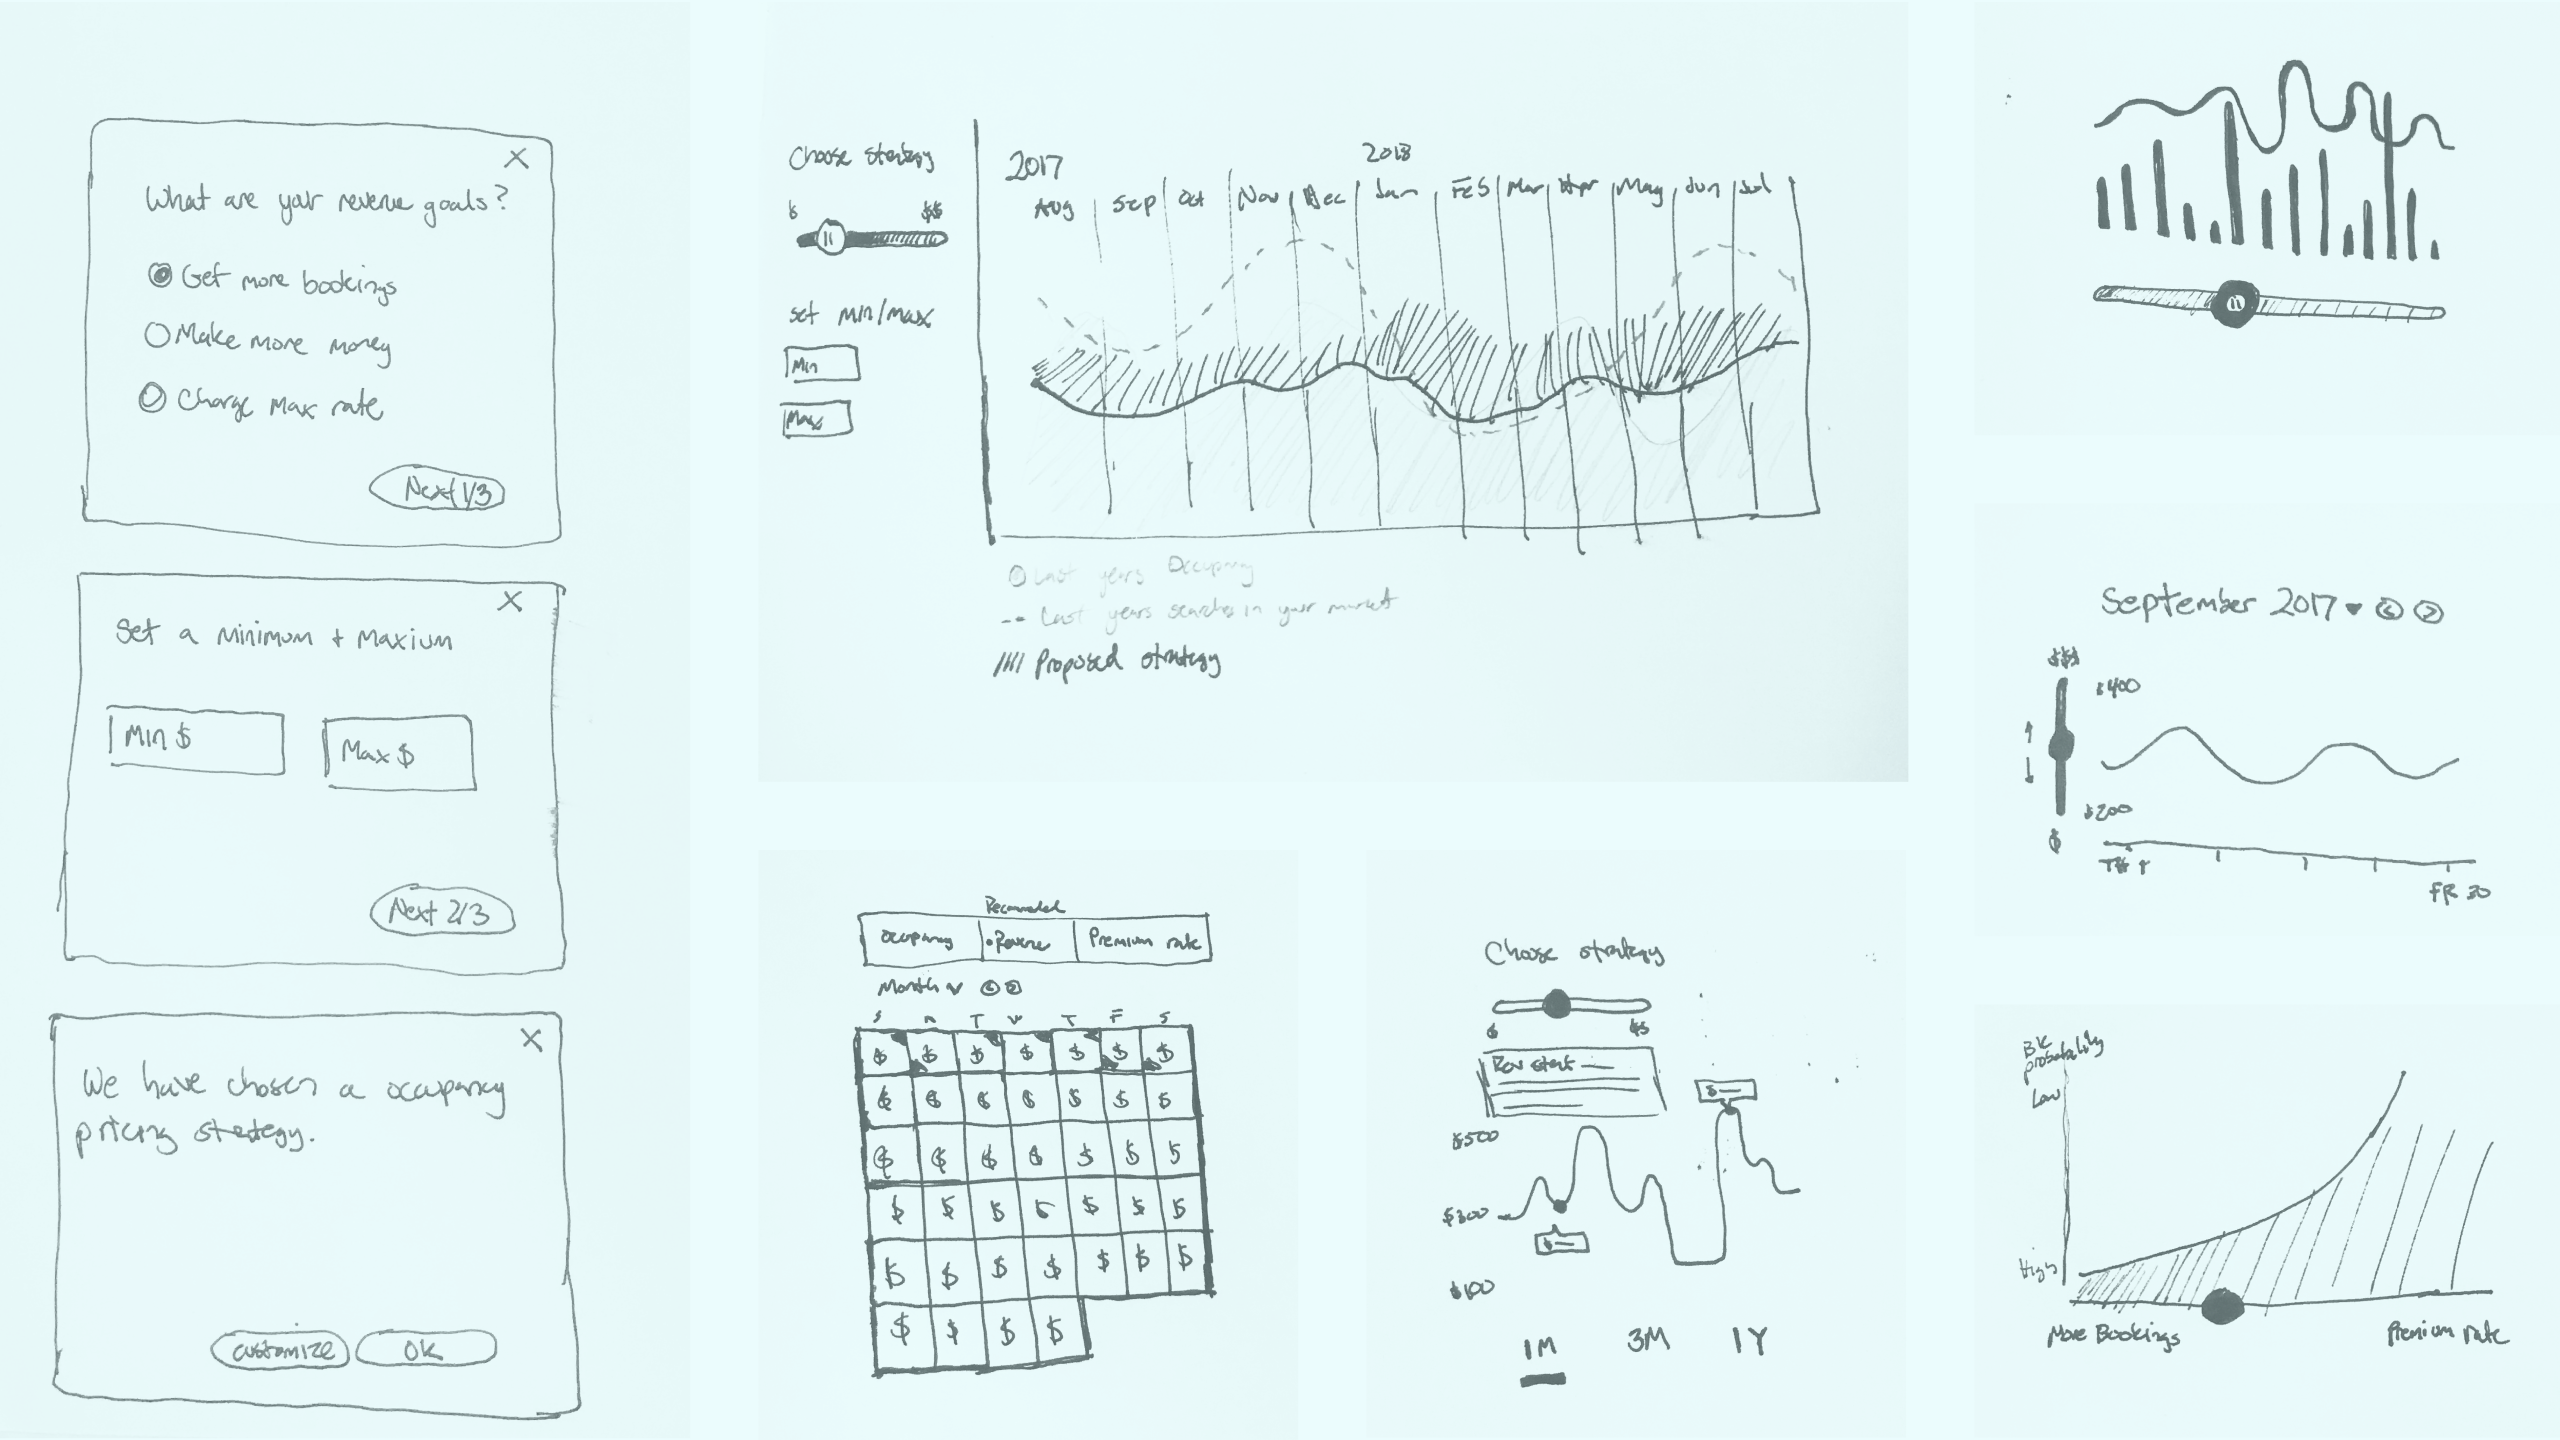 X
What are your revenue goals?
Get more bookings
Make more money
Charge Max rate
Next 1/3
X
Set a Minimum + Maxium
Min $
Max $
Next 2/3
X
We have chosen a occupancy
pricing strategy.
customize
OK
Choose strategy
$ $$
set min/max
Min
Max
2017 2018
Aug Sep Oct Nov Dec Jan FEB Mar Apr May Jun Jul
Last years Occupancy
-- Last years searches in your market
//// Proposed strategy
Occupancy
Revenue
Premium rate
Month
S M T W T F S
$ $ $ $ $ $ $
$ $ $ $ $ $ $
$ $ $ $ $ $ $
$ $ $ $ $ $ $
$ $ $ $ $ $ $
$ $ $ $
Choose strategy
$ $$
$
$500
$300
$
$100
1M 3M 1Y
September 2017
$$$
$400
$200
$
FR 30
BK
probability
Low
High
More Bookings
Premium rate